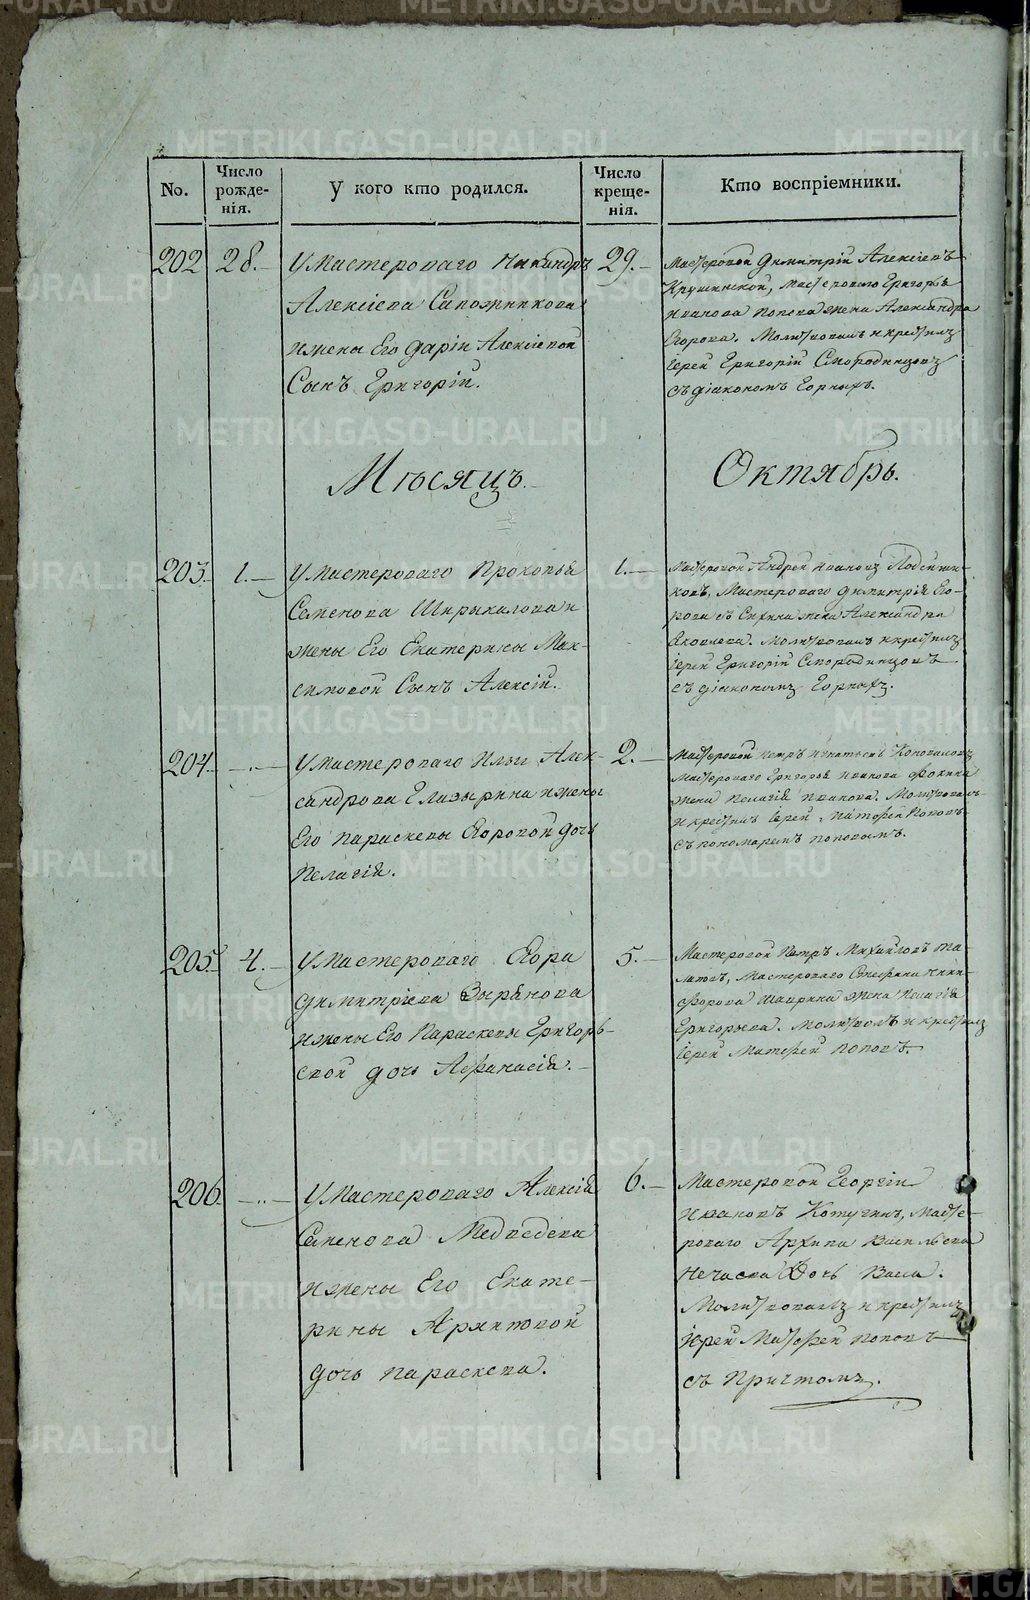 No.
Число рожде-нія.
У кого кто родился.
Число креще-нія.
Кто воспріемники.
202
28.
У Мастероваго Никандра
Алексіева Сапожникова
и жены Его Даріи Алексіевой
Сынъ Григорій.
29.
Мастеровой Димитрій Алексіевъ
Мастероваго Григорья
Иванова Попова жена Александра
Егорова. Молитвовалъ и крестилъ
Іерей Григорій Смородинцовъ
съ діакономъ Горныхъ.
Мѣсяцъ
Октябрь.
203
1.
У Мастероваго Прокопья
Семенова Ширыкалова и
жены Его Екатерины Мак-
симовой Сынъ Алексій.
1.
Мастеровой Андрей Ивановъ
ковъ, Мастероваго Димитрія Его-
рова жена Александра
Яковлева. Молитвовалъ и крестилъ
Іерей Григорій Смородинцовъ
съ діакономъ Горныхъ.
204
У Мастероваго Ильи Алек-
сандрова Глазырина и жены
Его Параскевы Егоровой дочь
Пелагія.
2.
Мастеровой Петръ Игнатьевъ Коновановъ
Мастероваго Григорья Иванова Фокина
жена Пелагія Иванова. Молитвовалъ
и крестилъ Іерей Матфей Поповъ
съ пономаремъ Поповымъ.
205
4.
У Мастероваго Егора
Димитріева Зырянова
и жены Его Параскевы Григорь-
евой дочь Афанасія.
5.
Мастеровой Петръ Михайловъ
Мастероваго Стефана Ники-
форова жена Пелагія
Григорьева. Молитвовалъ и крестилъ
Іерей Матфей Поповъ.
206
У Мастероваго Алексія
Семенова Медведева
и жены Его Екате-
рины
дочь Параскева.
6.
Мастеровой Георгій
Ивановъ Котугинъ, Масте-
роваго Архипа Васильева
Нечаева Дочь Васса.
Молитвовалъ и крестилъ
Іерей Матфей Поповъ
съ Причтомъ.
METRIKI.GASO-URAL.RU